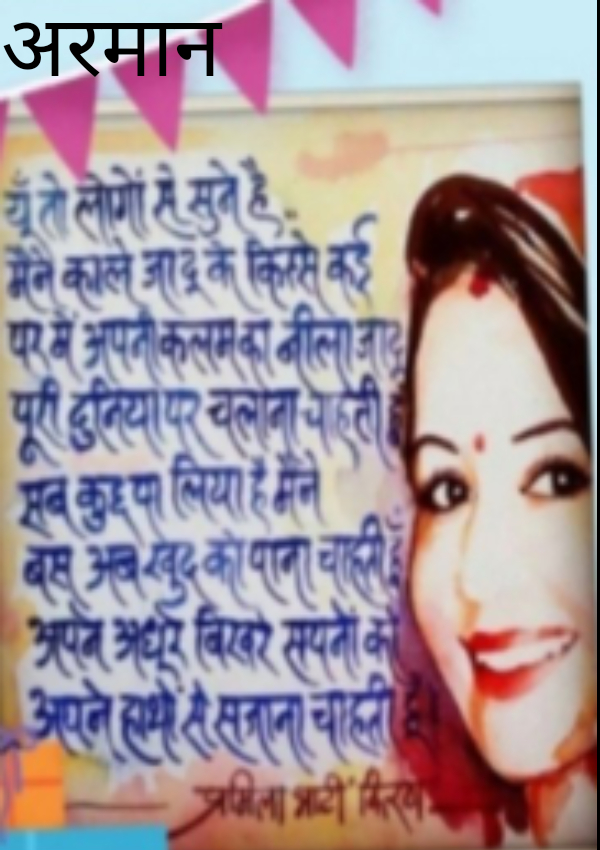 अरमान
यूँ तो लोगों से सुने है
मैंने काले जादू के किस्से कई
पर मैं अपनी कलम का नीला जादू
पूरी दुनिया पर चलाना चाहती हूँ
सब कुछ पा लिया है मैंने
बस अब खुद को पाना चाहती हूँ
अपने अधूरे बिखरे सपनों को
अपने हाथों से सजाना चाहती हूँ।
भाटी किरण